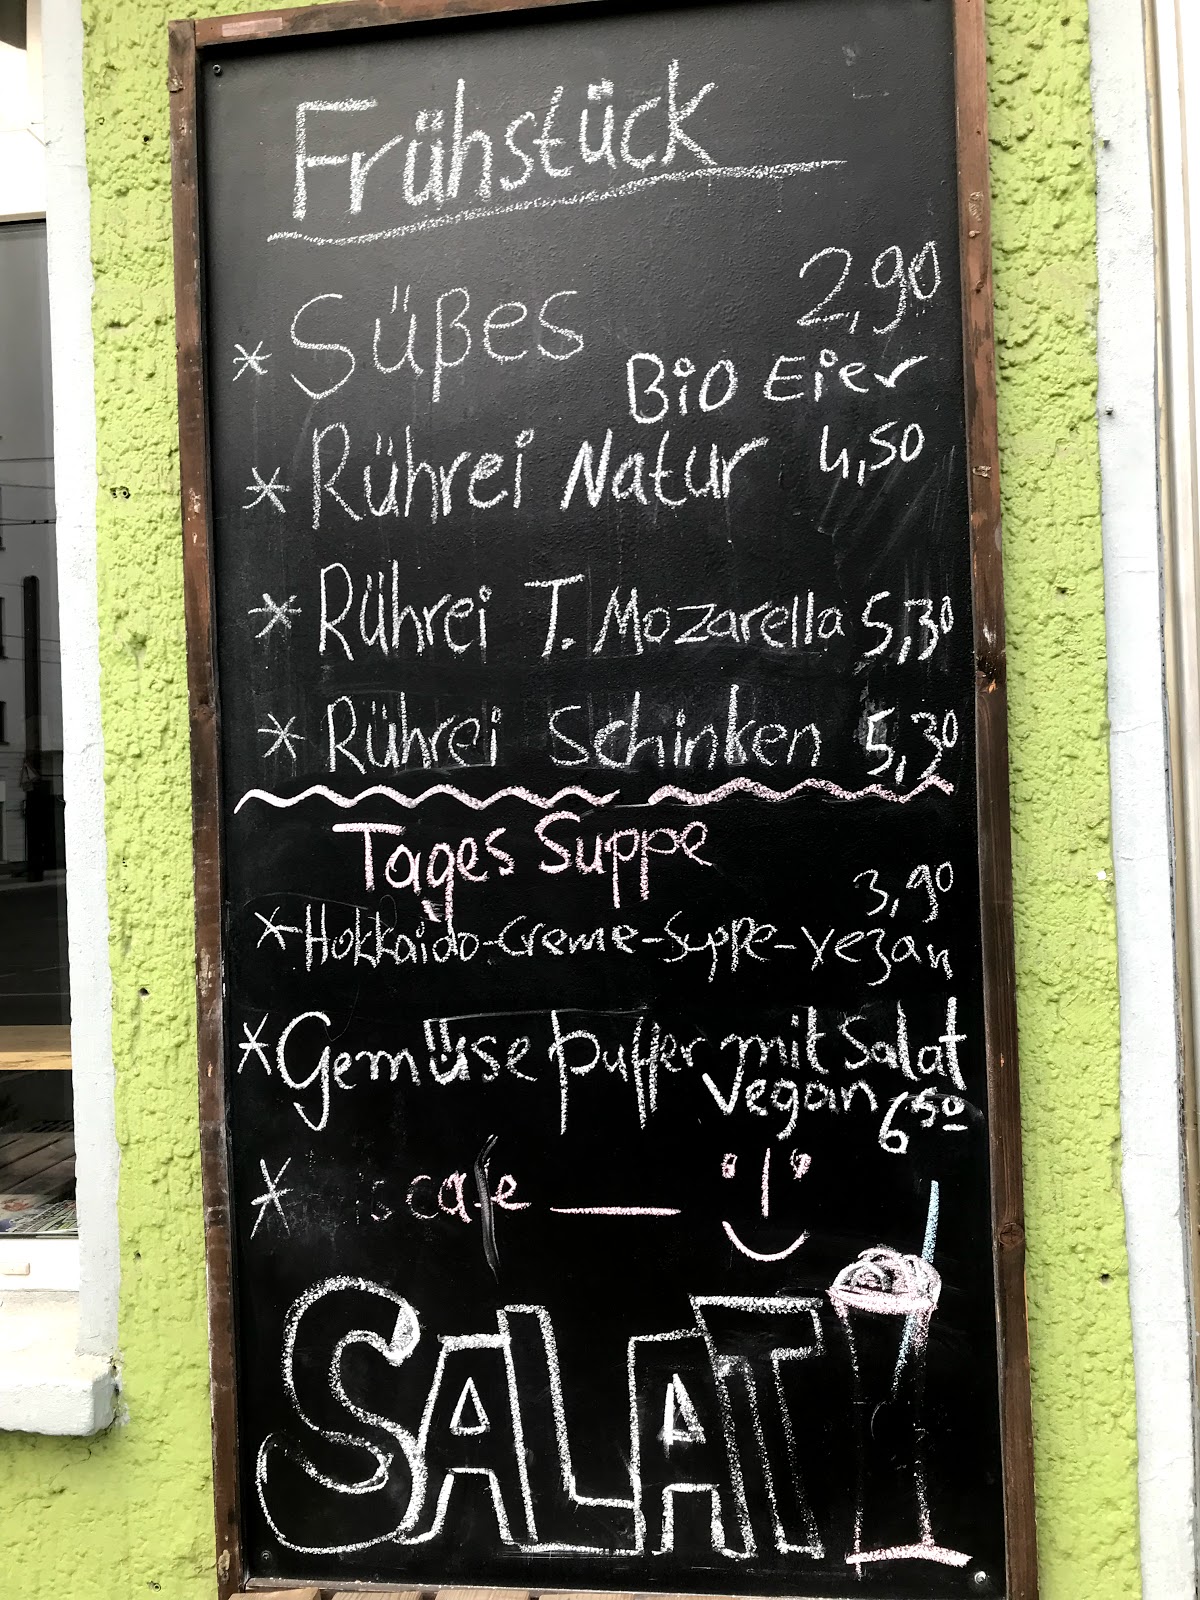 Frühstück
* Süßes 2,90
Bio Eier
* Rührei Natur 4,50
* Rührei T. Mozarella 5,30
* Rührei Schinken 5,30
Tages Suppe
3,90
* Hokkaido-Creme-Suppe-vegan
* Gemüse puffer mit Salat
Vegan 6 50
* is cafe
SALAT